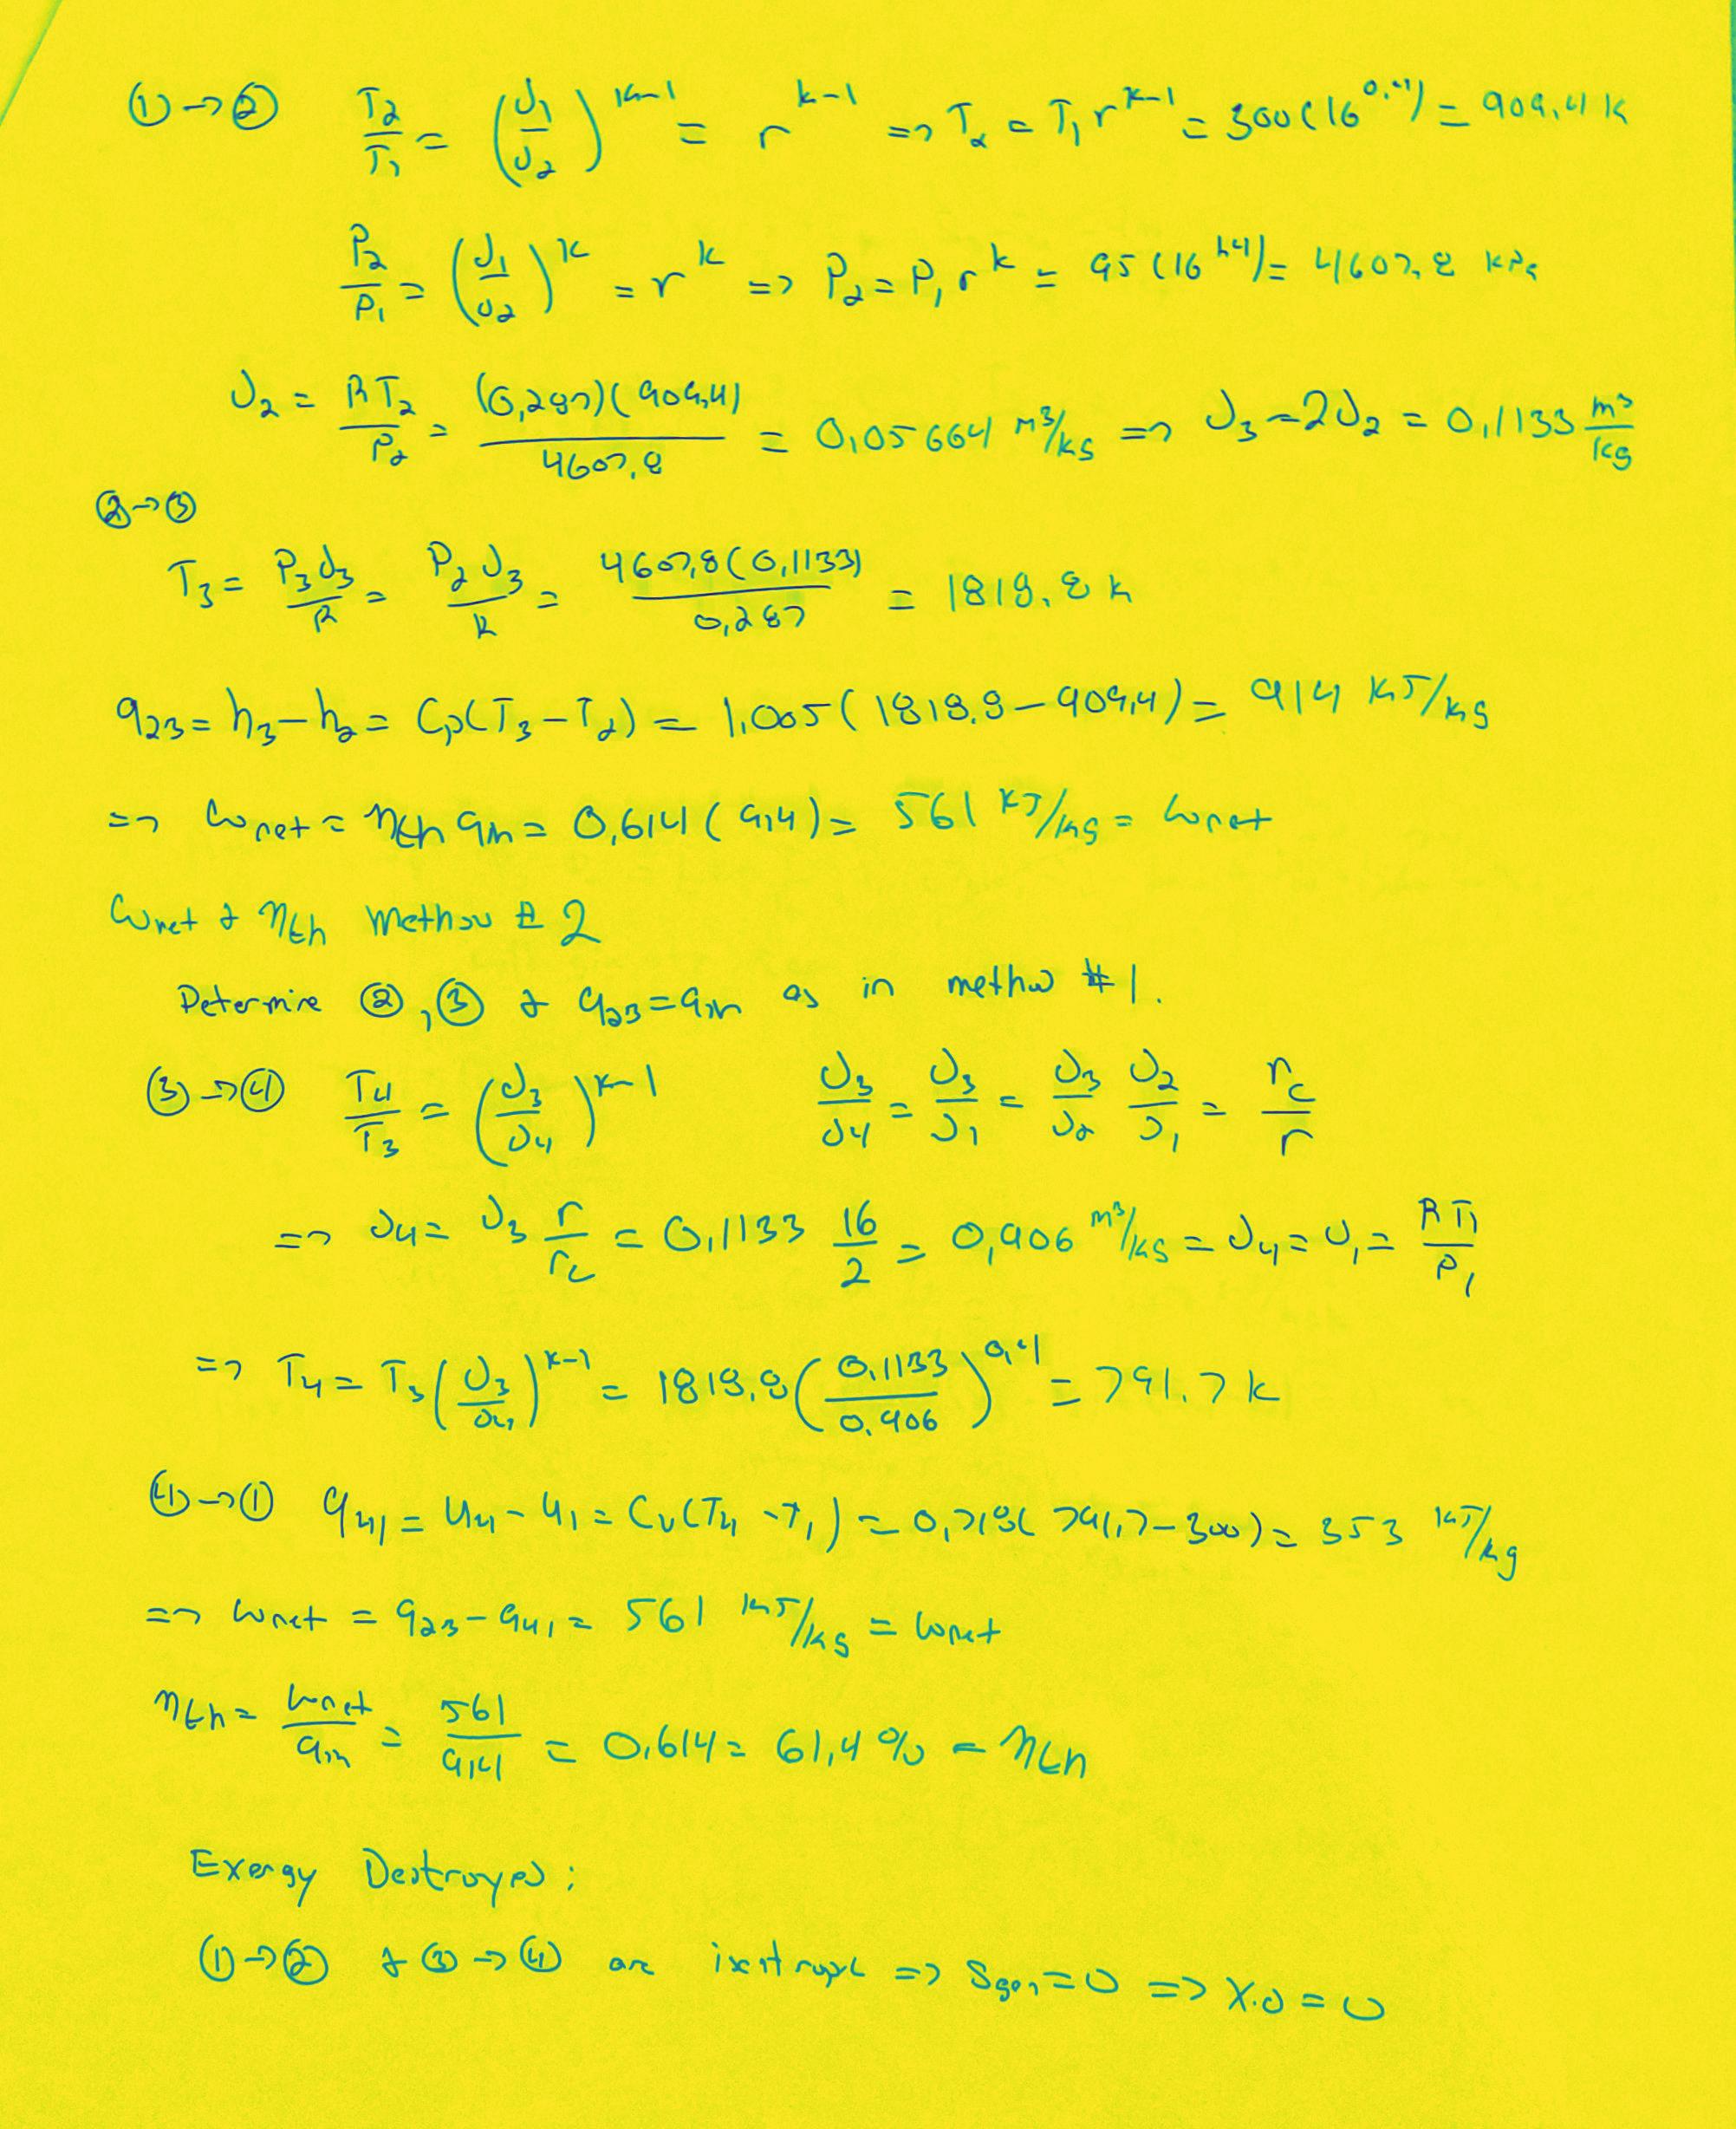 ①→② T₂/T₁ = (v₁/v₂)^(k-1) = r^(k-1) => T₂ = T₁ r^(k-1) = 300(16^0.4) = 909,4 K
P₂/P₁ = (v₁/v₂)^k = r^k => P₂ = P₁ r^k = 95(16^1.4) = 4607,8 kPa
v₂ = RT₂/P₂ = (0,287)(909,4)/4607,8 = 0,05664 m³/kg => v₃ = 2v₂ = 0,1133 m³/kg
②→③
T₃ = P₃v₃/R = P₂v₃/R = 4607,8(0,1133)/0,287 = 1818,8 K
q₂₃ = h₃-h₂ = Cp(T₃-T₂) = 1,005(1818,8-909,4) = 914 kJ/kg
=> wnet = ηth qin = 0,614(914) = 561 kJ/kg = wnet
wnet & ηth Method # 2
Determine ②, ③ & q₂₃=qin as in method #1.
③→④ T₄/T₃ = (v₃/v₄)^(k-1) v₃/v₄ = v₃/v₁ = v₃/v₂ v₂/v₁ = rc/r
=> v₄ = v₃ r/rc = 0,1133 16/2 = 0,906 m³/kg = v₄ = v₁ = RT₁/P₁
=> T₄ = T₃(v₃/v₄)^(k-1) = 1818,8(0,1133/0,906)^0,4 = 791,7 K
④→① q₄₁ = u₄-u₁ = Cv(T₄-T₁) = 0,718(791,7-300) = 353 kJ/kg
=> wnet = q₂₃-q₄₁ = 561 kJ/kg = wnet
ηth = wnet/qin = 561/914 = 0,614 = 61,4% = ηth
Exergy Destroyed:
①→② & ③→④ are isentropic => Sgen=0 => X.D=0